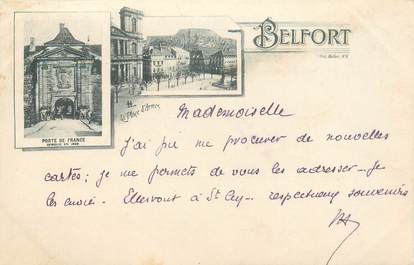 BELFORT
PORTE DE FRANCE
La Place d'Armes
Mademoiselle
J'ai pu me procurer de nouvelles
cartes; je me permets de vous les adresser - Je
les envoie à St Cyr - respectueux souvenirs